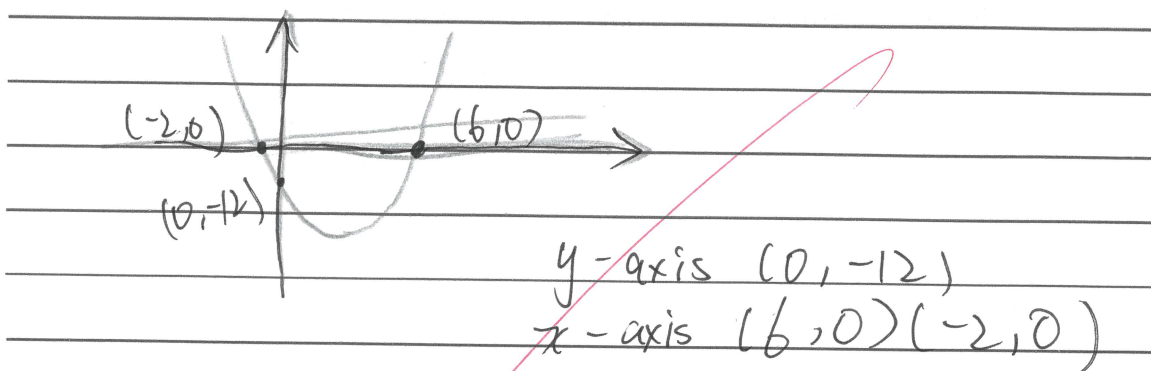 (-2,0)
(6,0)
(0,-12)
y-axis (0,-12)
x-axis (6,0)(-2,0)